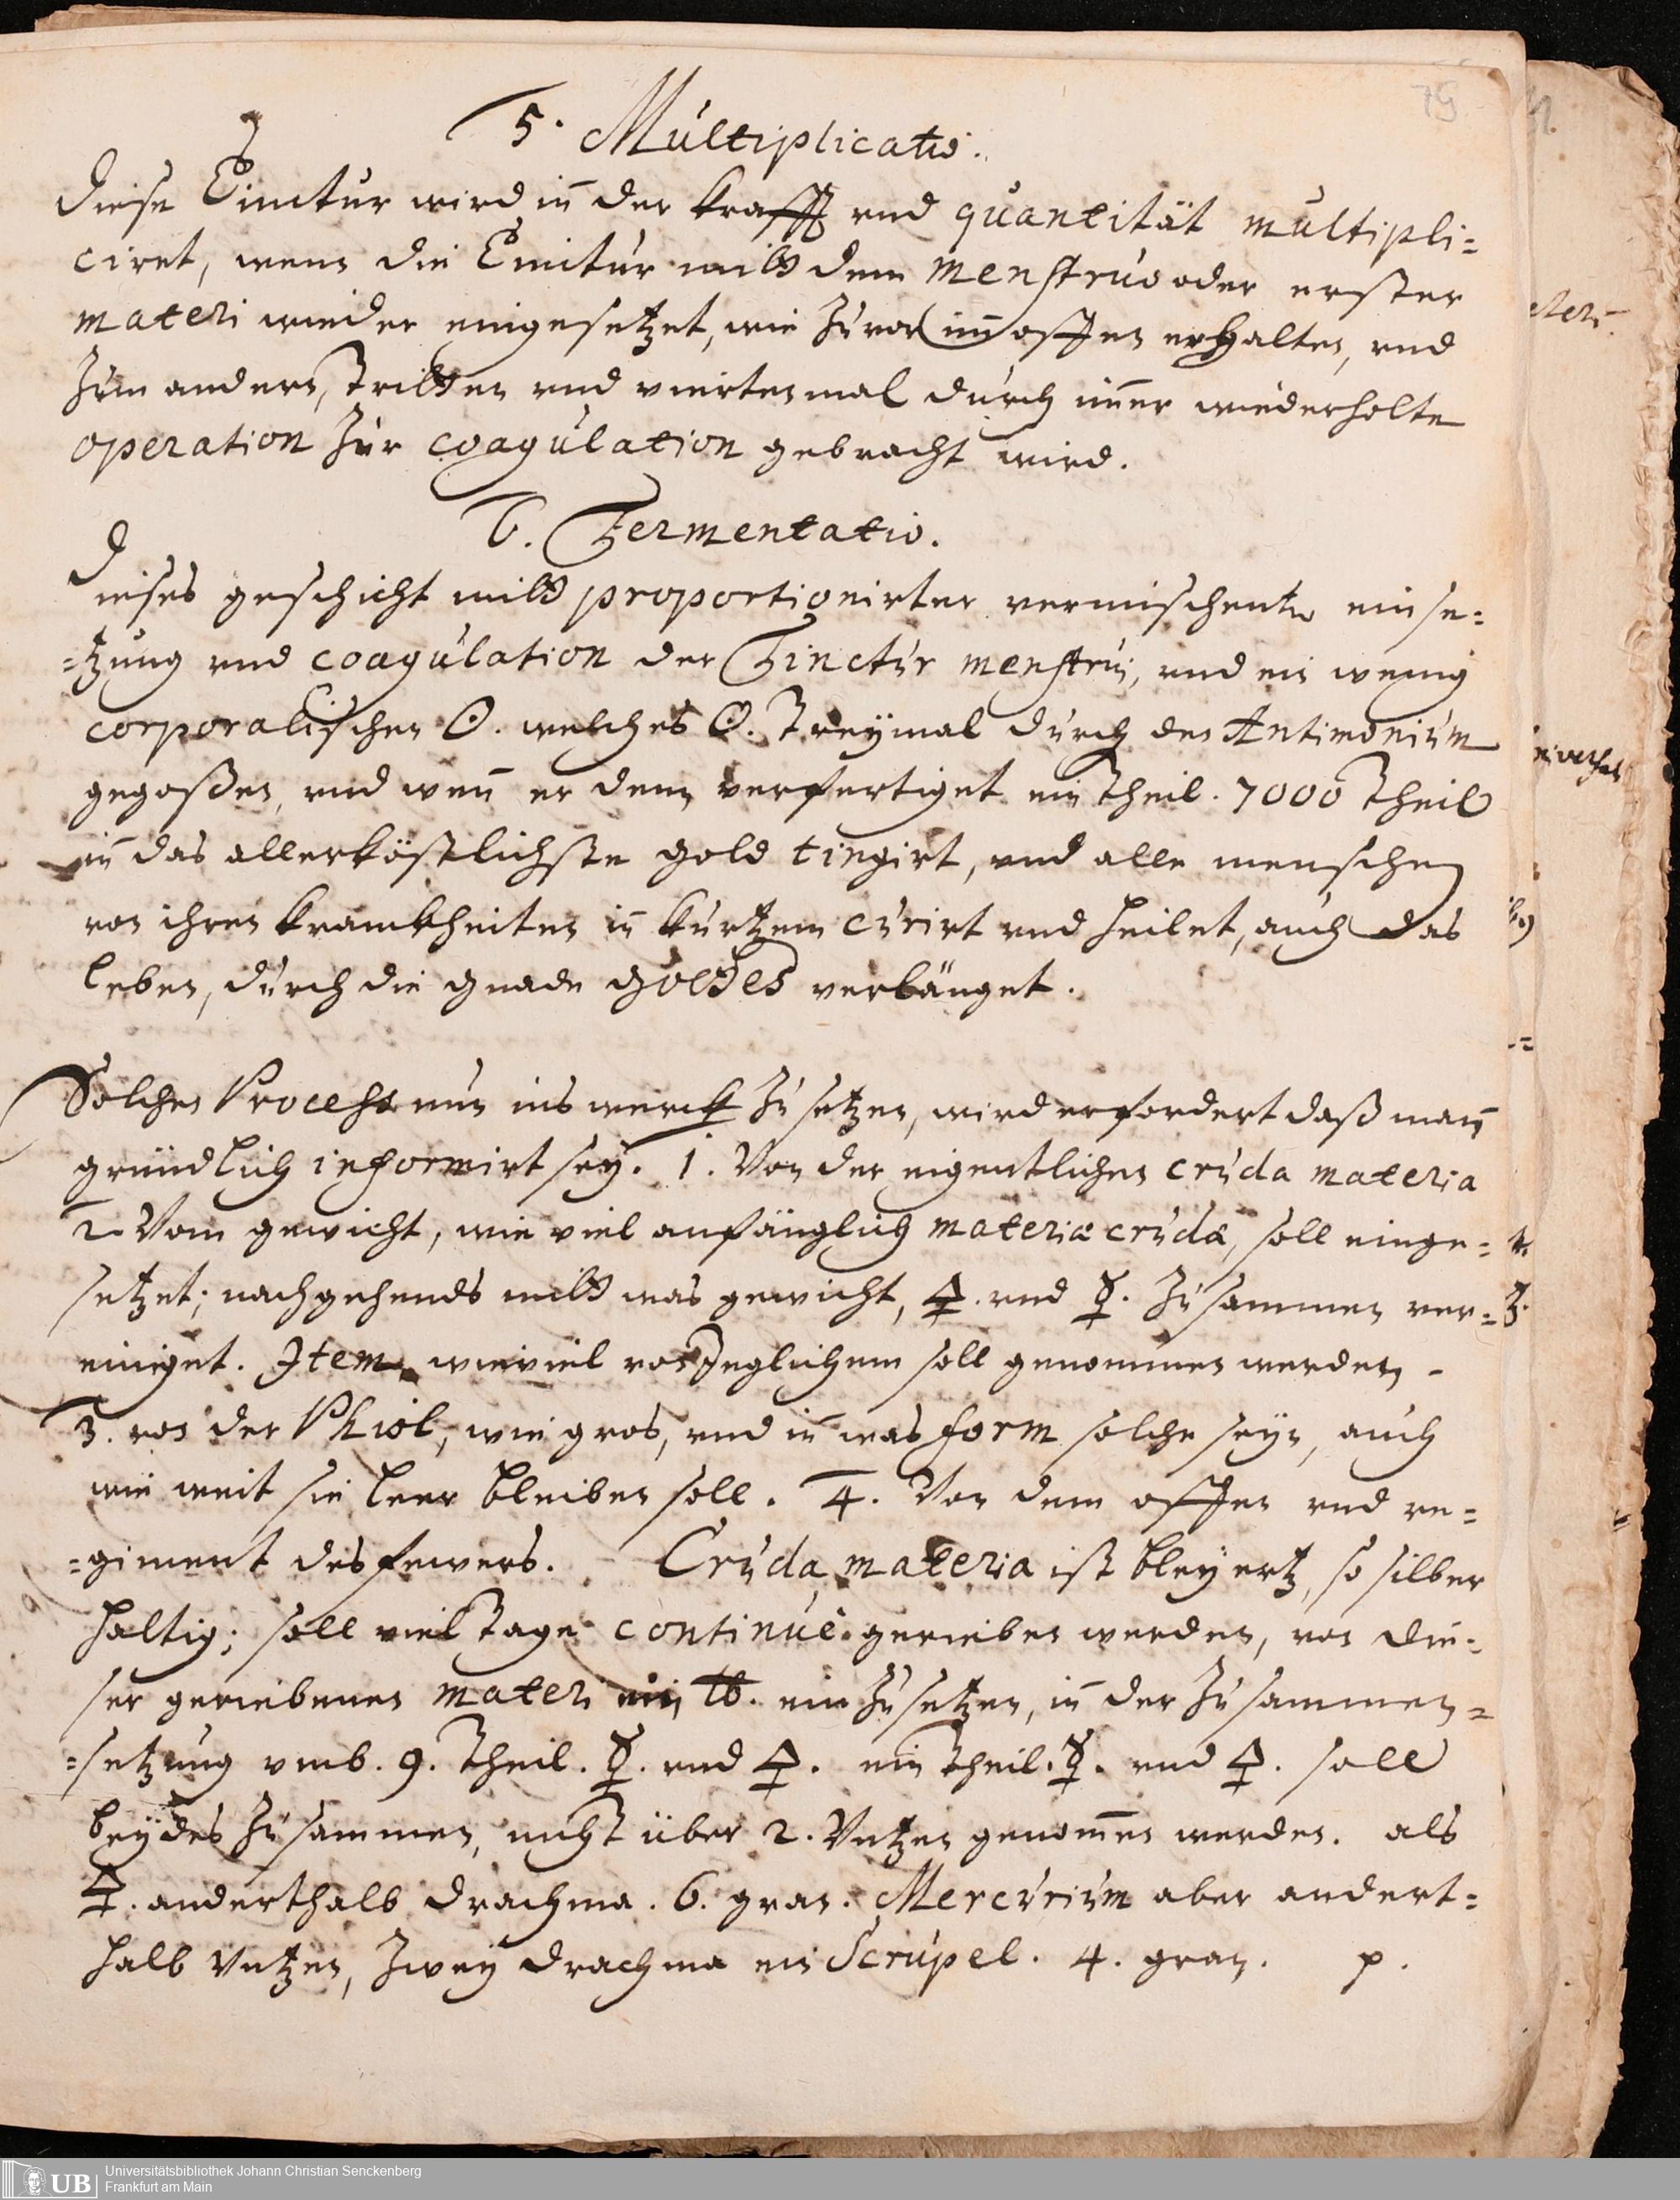 79
5. Multiplicatio.
Diese Tinctur wird in̄ der krafft vnd quantität multipli=
ciret, wenn die Tinctur mitt dem menstruo oder erster
materi wieder eingesetzet, wie zuvor im offen erhalten, vnd
zum andern, dritten vnd viertenmal durch im̄er wiederholte
operation zur coagulation gebracht wird.
6. Fermentatio.
Dieses geschicht mitt proportionirter vermischenter einse=
=tzung vnd coagulation der Tinctur menstrui, vnd ein wenig
corporalischen ☉. welches ☉. dreÿmal durch den Antimonium
gegoßen, vnd wen̄ er denn verfertiget ein theil. 7000 theil
in̄ das allerköstlichste gold tingirt, vnd alle menschen
von ihren kranckheiten in̄ kurtzem curirt vnd heilet, auch das
leben, durch die gnade Gottes verlänget.
Solchen Process nun ins werck zu setzen, wird erfordert daß man̄
gründlich informirt seÿ. 1. Von der eigentlichen cruda materia
2. Vom gewicht, wie viel anfänglich materiæ crudæ, soll einge=
setzet; nachgehends mitt was gewicht, 🜍. vnd ☿. zusammen ver=
einiget. Item, wieviel von Jeglichem soll genommen werden.
3. von der Phiol, wie gros, vnd in̄ was form solche seÿn, auch
wie weit sie leer bleiben soll. 4. Von dem offen vnd re=
=giment des fewers. Cruda materia ist bleÿ ertz, so silber
haltig; soll viel Tage continuè gerieben werden, von die=
ser geriebenen materi ein ℔. ein zusetzen, in̄ der zusammen=
=setzung vmb. 9. theil. ☿. vnd 🜍. ein theil. ☿. vnd 🜍. soll
beÿdes zusammen, nicht über 2. Vntzen genom̄en werden. als
🜍. anderthalb drachma. 6. gran. Mercurium aber andert=
halb Vntzen, zweÿ drachma ein Scrupel. 4. gran. p.
UB
Universitätsbibliothek Johann Christian Senckenberg
Frankfurt am Main